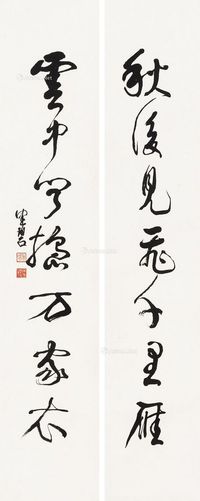 秋後見飛千里雁
雲中聞搗万家衣